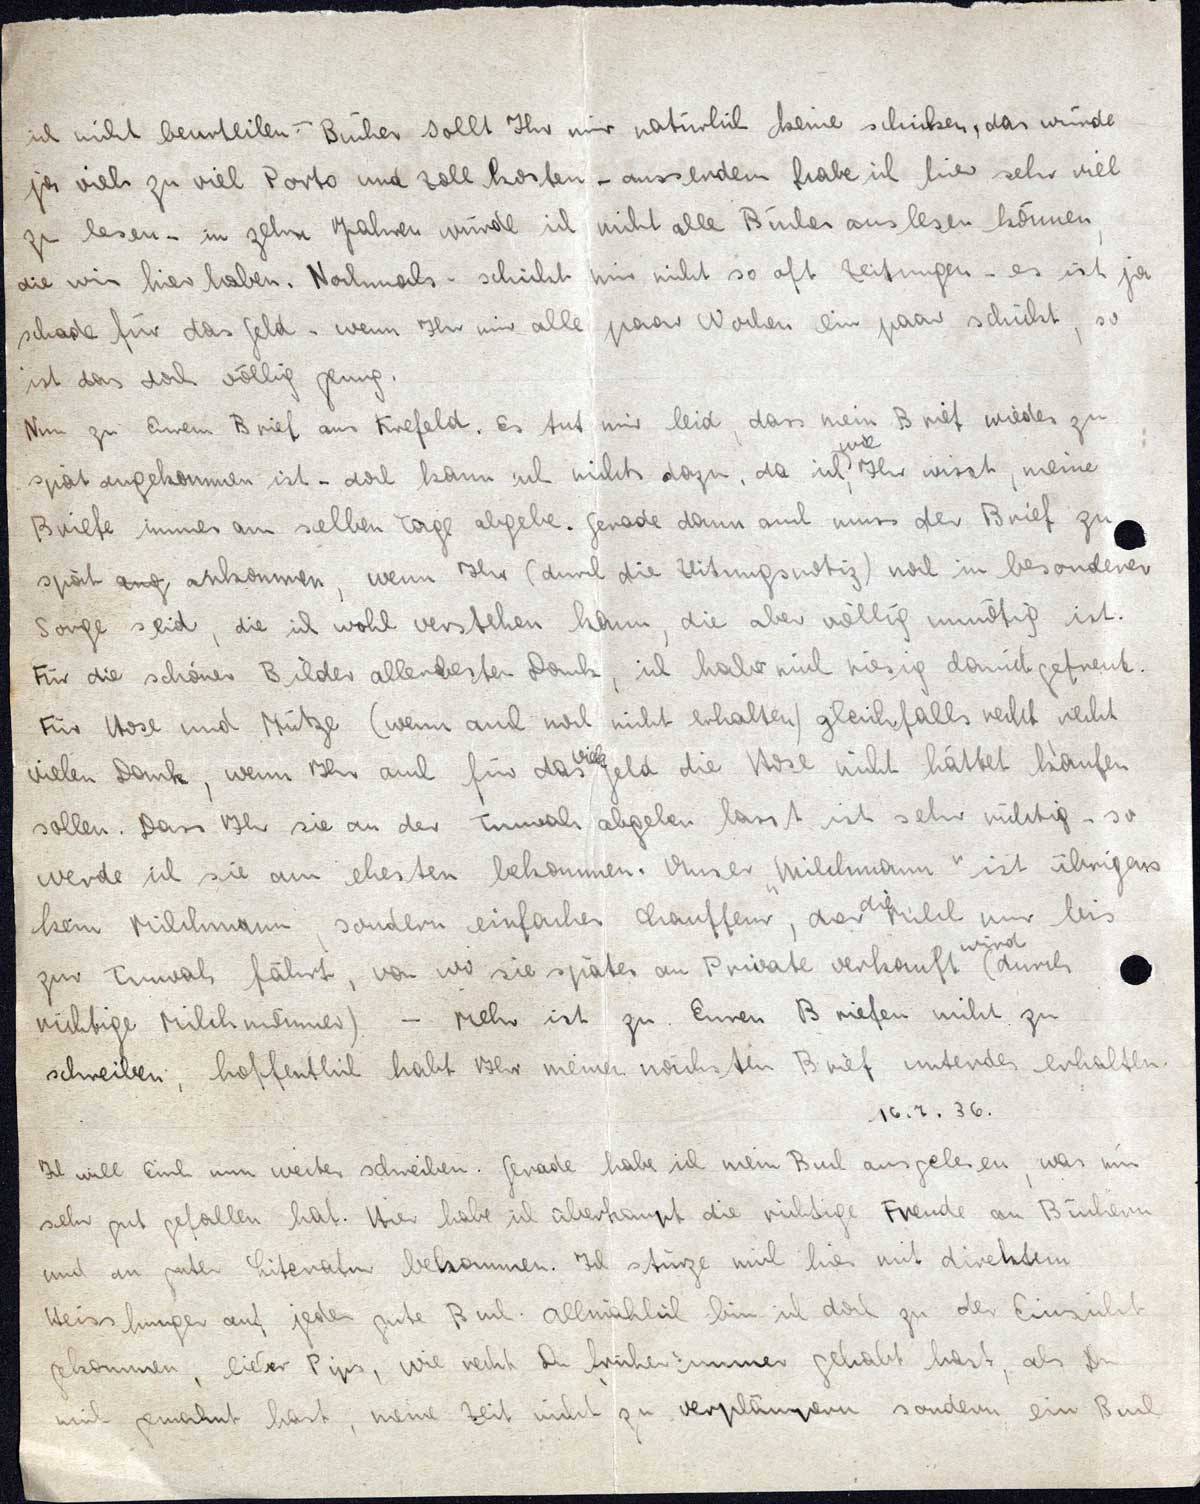 ich nicht beurteilen – Bücher sollt Ihr mir natürlich keine schicken, das würde
ja viels zu viel Porto und Zoll kosten – ausserdem habe ich hier sehr viel
zu lesen – in zehn Jahren würde ich nicht alle Bücher auslesen können,
die wir hier haben. Nochmals – schickt mir nicht so oft Zeitungen – es ist ja
schade für das Geld – wenn Ihr mir alle paar Wochen ein paar schickt, so
ist das doch völlig genug.
Nun zu Eurem Brief aus Krefeld. Es tut mir leid, dass mein Brief wieder zu
spät angekommen ist – doch kann ich nichts dazu, da ich, wie Ihr wisst, meine
Briefe immer am selben Tage abgebe. Gerade dann auch muss der Brief zu
spät ang ankommen, wenn Ihr (durch die Zeitungsnotiz) noch in besonderer
Sorge seid, die ich wohl verstehen kann, die aber völlig unnötig ist.
Für die schönen Bilder allerbesten Dank, ich habe mich riesig damit gefreut.
Für Hose und Mütze (wenn auch noch nicht erhalten) gleichfalls recht recht
vielen Dank, wenn Ihr auch für das viele Geld die Hose nicht hättet kaufen
sollen. Dass Ihr sie an der Tnuvah abgeben lasst ist sehr richtig – so
werde ich sie am ehesten bekommen. Unser „Milchmann" ist übrigens
kein Milchmann, sondern einfacher Chauffeur, der die Milch nur bis
zur Tnuvah fährt, von wo sie später an Private verkauft wird (durch
richtige Milchmänner) – Mehr ist zu Euren Briefen nicht zu
schreiben, hoffentlich habt Ihr meinen nächsten Brief unterdes erhalten.
16.7.36.
Ich will Euch nun weiter schreiben. Gerade habe ich mein Buch ausgelesen, was mir
sehr gut gefallen hat. Hier habe ich überhaupt die richtige Freude an Büchern
und an guter Literatur bekommen. Ich stürze mich hier mit direktem
Heisshunger auf jedes gute Buch. Allmählich bin ich doch zu der Einsicht
gekommen, lieber Pips, wie recht Du früher immer gehabt hast, als Du
mich gemahnt hast, meine Zeit nicht zu verplämpern sondern ein Buch